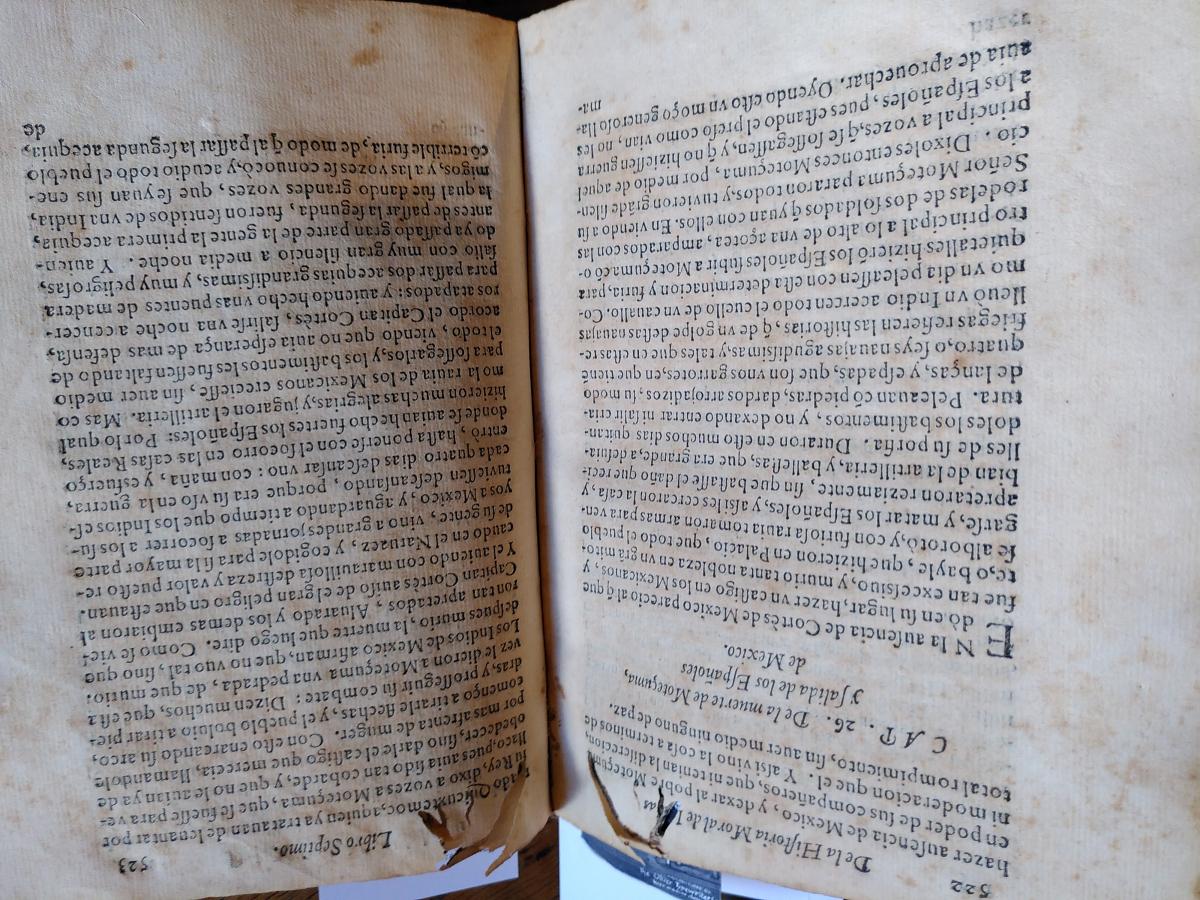 522
De la Historia Moral de I
hazer ausencia de Mexico, y dexar al pobre Moteçum
en poder de sus compañeros, que ni tenian la discrecion,
ni moderacion que el. Y assi vino la cosa a terminos de
total rompimiento, sin auer medio ninguno de paz.
CAP. 26. De la muerte de Moteçuma,
y salida de los Españoles
de Mexico.
EN la ausencia de Cortès de Mexico parecio al q̃
dò en su lugar, hazer vn castigo en los Mexicanos, y
fue tan excessiuo, y murio tanta nobleza en vn grã mito-
te, o bayle, que hizieron en Palacio, que todo el pueblo
se alborotò, y con furiosa rauia tomaron armas para ven-
garse, y matar los Españoles, y assi les cercaron la casa, y
apretaron reziamente, sin que bastasse el daño que reci-
bian de la artilleria, y ballestas, que era grande, a desuia-
lles de su porfia. Duraron en esto muchos dias quitan-
doles los bastimentos, y no dexando entrar ni salir cria-
tura. Peleauan cõ piedras, dardos arrojadizos, su modo
de lanças, y espadas, que son vnos garrotes, en que tienẽ
quatro, o seys nauajas agudissimas, y tales que en estas re-
friegas refieren las historias, q̃ de vn golpe destas nauajas
lleuò vn Indio acercen todo el cuello de vn cauallo. Co-
mo vn dia peleassen con esta determinacion y furia, para
quietalles hizierõ los Españoles subir a Moteçuma cõ o-
tro principal a lo alto de vna açotea, amparados con las
rodelas de dos soldados q̃ yuan con ellos. En viendo a su
Señor Moteçuma pararon todos, y tuuieron grãde silen-
cio. Dixoles entonces Moteçuma, por medio de aquel
principal a vozes, q̃ se sossegassen, y q̃ no hiziessen guerra
a los Españoles, pues estando el preso como vian, no les
auia de aprouechar. Oyendo esto vn moço generoso lla-
ma-
523
Libro Septimo.
mado Quicuxtemoc, a quien ya tratauan de leuantar por
su Rey, dixo a vozes a Moteçuma, que se fuesse para ve-
llaco, pues auia sido tan cobarde, y que no le auian ya de
obedecer, sino darle el castigo que merecia, llamandole
por mas afrenta de muger. Con esto enarcando su arco,
començo a tirarle flechas, y el pueblo boluio a tirar pie-
dras, y prosseguir su combate: Dizen muchos, que esta
vez le dieron a Moteçuma vna pedrada, de que murio:
Los Indios de Mexico afirman, que no vuo tal, sino que
despues murio, la muerte que luego dire. Como se vie-
ron tan apretados, Aluarado y los demas embiaron al
Capitan Cortès auiso de el gran peligro en que estauan.
Y el auiendo con marauillosa destreza y valor puesto re-
caudo en el Naruaez, y cogidole para si la mayor parte
de su gente, vino a grandes jornadas a socorrer a los su-
yos a Mexico, y aguardando a tiempo que los Indios es-
tuuiessen descansando, porque era su vso en la guerra,
cada quatro dias descansar vno: con maña, y esfuerço
entrò, hasta ponerse con el socorro en las casas Reales,
donde se auian hecho fuertes los Españoles: Por lo qual
hizieron muchas alegrias, y jugaron el artilleria. Mas co
mo la rauia de los Mexicanos creciesse, sin auer medio
para sossegarlos, y los bastimentos les fuessen faltando de
el todo, viendo que no auia esperança de mas defensa,
acordo el Capitan Cortès, salirse vna noche a cencer-
ros atapados: y auiendo hecho vnas puentes de madera
para passar dos acequias grandissimas, y muy peligrosas,
salio con muy gran silencio a media noche. Y auien-
do ya passado gran parte de la gente la primera acequia,
antes de passar la segunda, fueron sentidos de vna India,
la qual fue dando grandes vozes, que se yuan sus ene-
migos, y a las vozes se conuocò, y acudio todo el pueblo
cõ terrible furia, de modo q̃ al passar la segunda acequia,
de